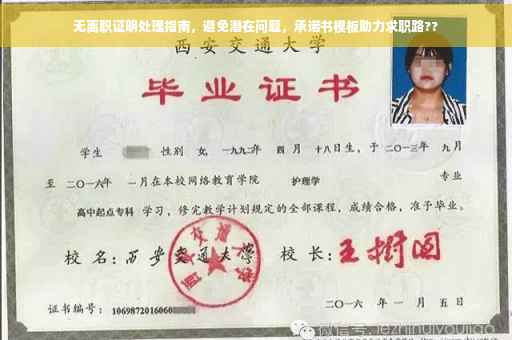 无离职证明处理指南，避免潜在问题，承诺书模板助力求职路??
西安交通大学
毕业证书
学生 性别 女，一九九二年 四月 十八日生，于二〇一三年 九月
至 二〇一六年 一月在本校网络教育学院 护理学 专业
高中起点专科 学习，修完教学计划规定的全部课程，成绩合格，准予毕业。
校 名：西安交通大学 校 长：王树国
西安交通大学
证书编号：1069872016060 二〇一六 年 一 月 五 日
微信号: jezhinuiyoujiao